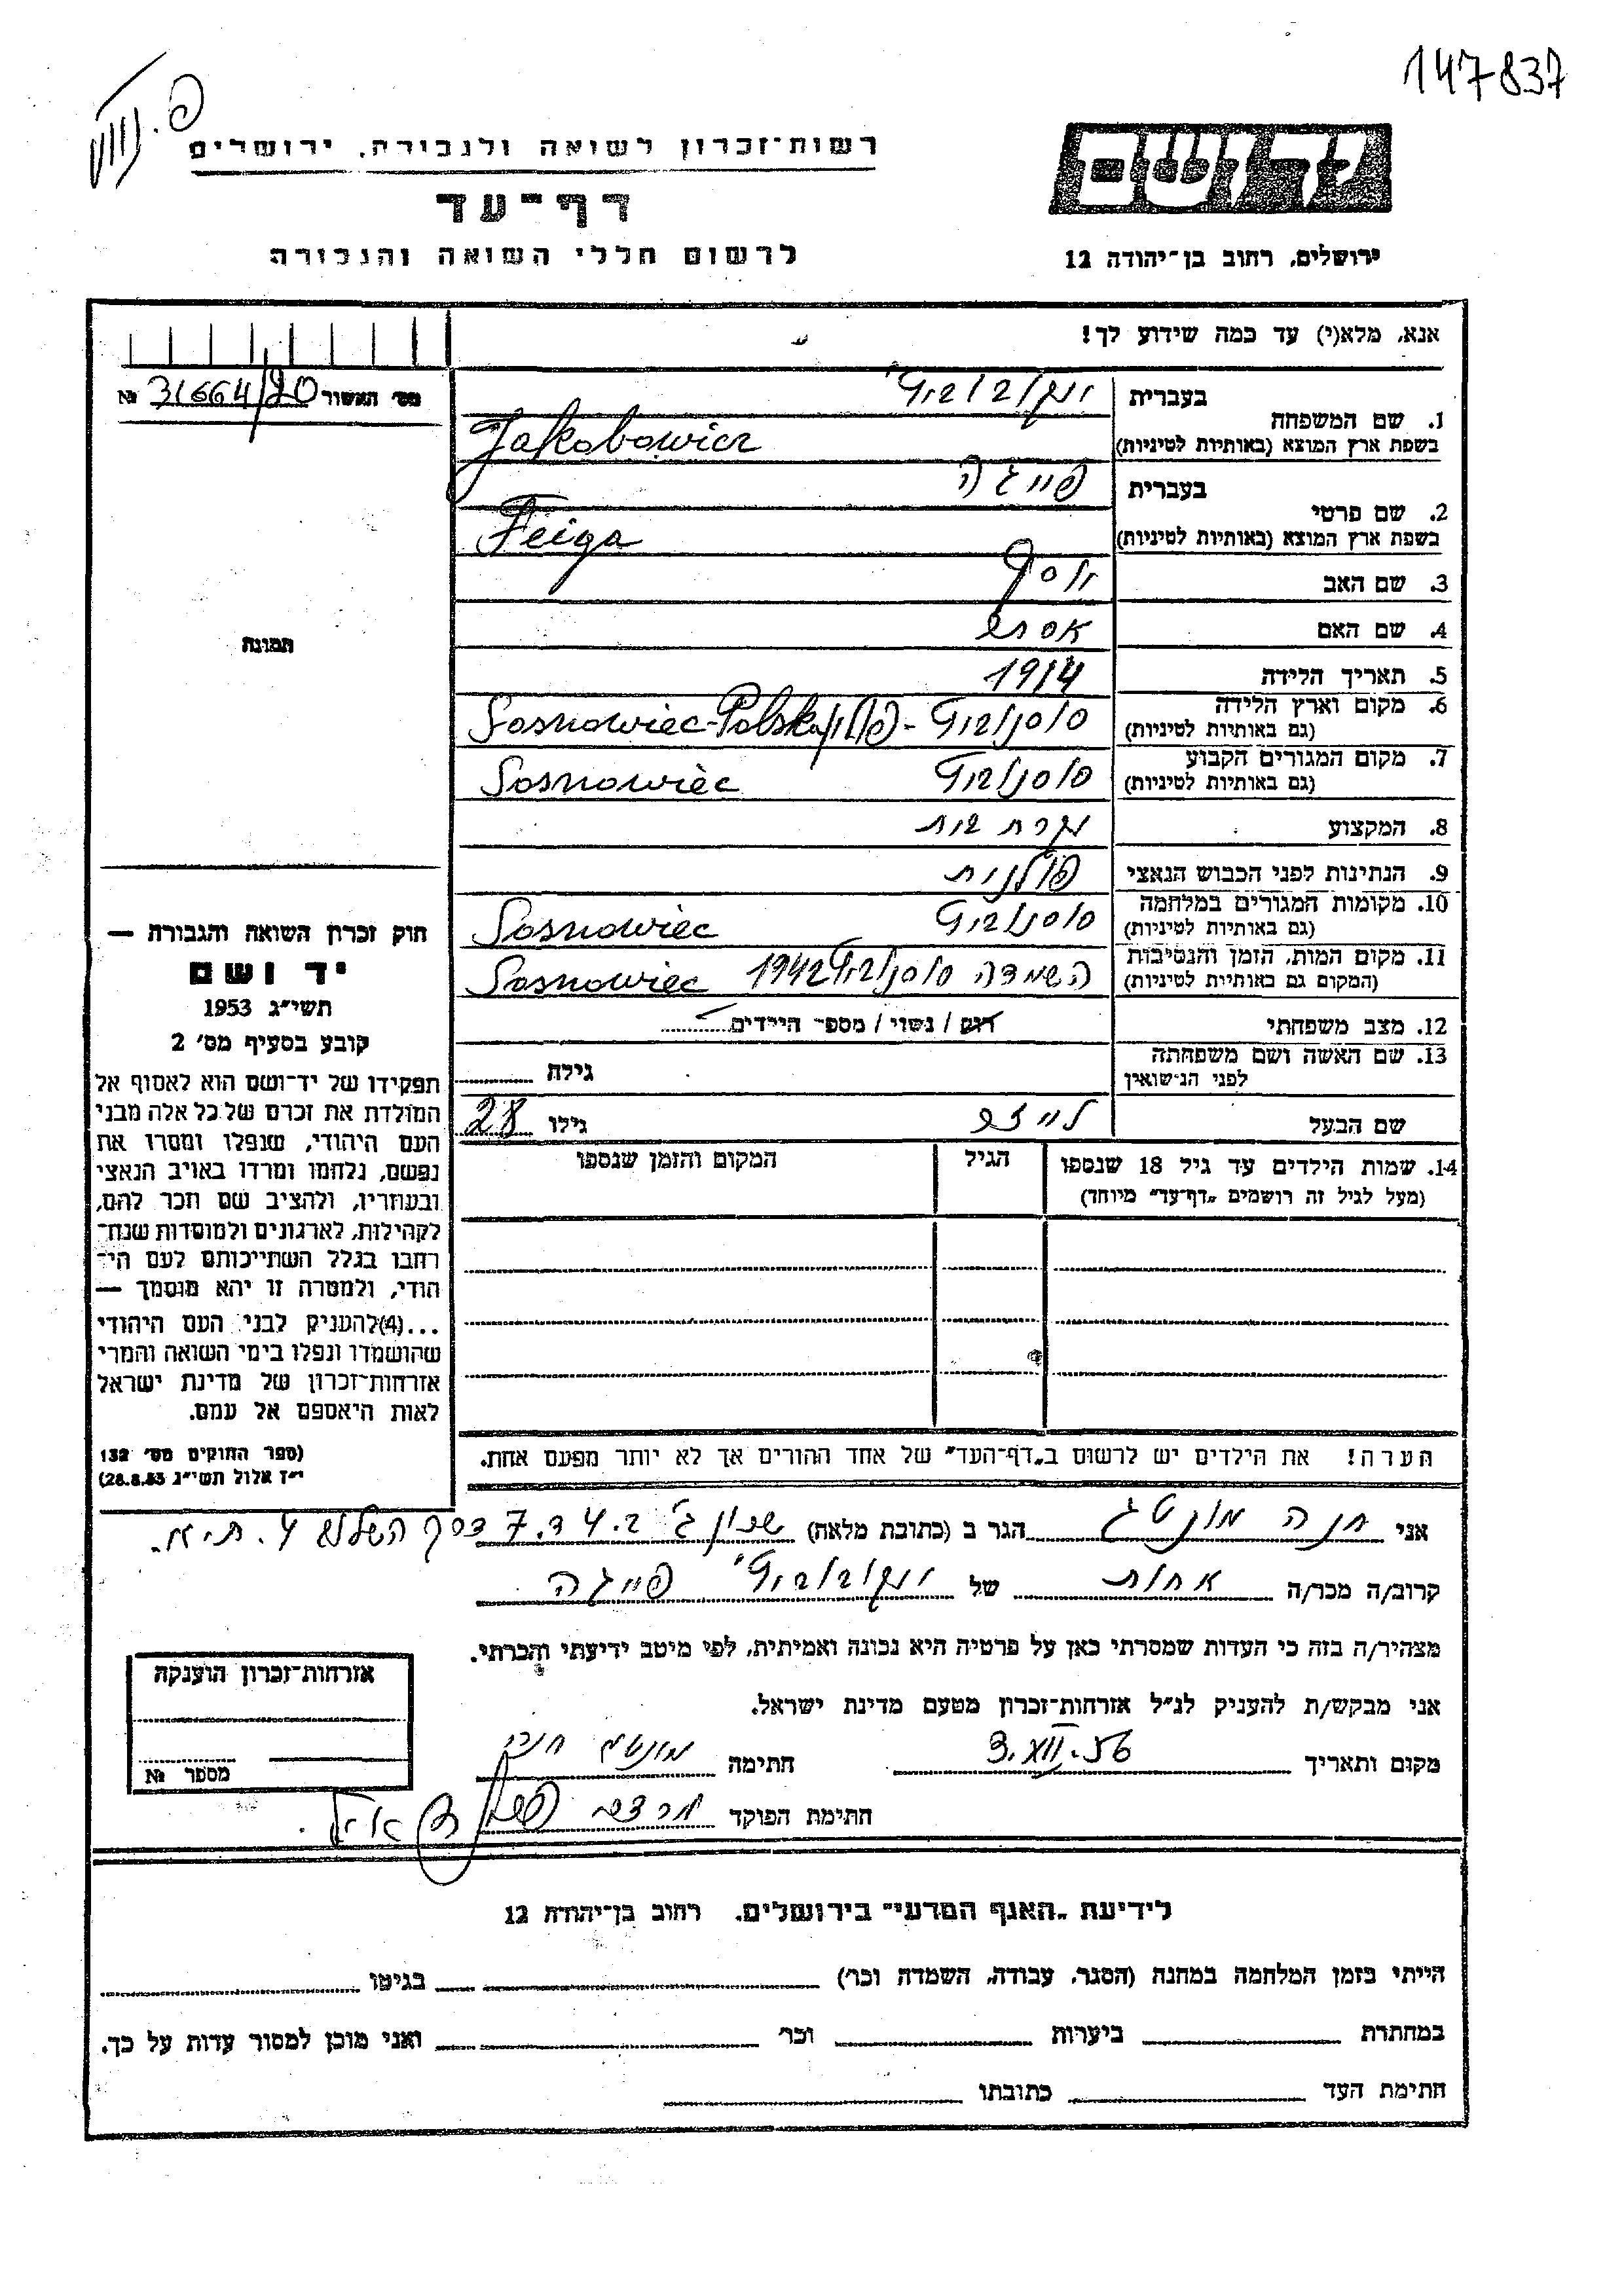 147837
יד ושם
רשות־זכרון לשואה ולגבורה, ירושלים
דף־עד
לרשום חללי השואה והגבורה
ירושלים, רחוב בן־יהודה 12
אנא, מלא(י) עד כמה שידוע לך!
מס׳ האשור 31664/20 №
1. שם המשפחה
בעברית יעקובוביץ׳
בשפת ארץ המוצא (באותיות לטיניות) Jakobowicz
2. שם פרטי
בעברית פייגה
בשפת ארץ המוצא (באותיות לטיניות) Feiga
3. שם האב יוסף
4. שם האם אסתר
5. תאריך הלידה 1914
6. מקום וארץ הלידה סוסנוביץ - פולין Sosnowiec-Polska
(גם באותיות לטיניות)
7. מקום המגורים הקבוע סוסנוביץ Sosnowiec
(גם באותיות לטיניות)
8. המקצוע עקרת בית
9. הנתינות לפני הכבוש הנאצי פולנית
10. מקומות המגורים במלחמה סוסנוביץ Sosnowiec
(גם באותיות לטיניות)
11. מקום המות, הזמן והנסיבות השמדה סוסנוביץ 1942 Sosnowiec
(המקום גם באותיות לטיניות)
12. מצב משפחתי רווק / נשוי / מספר הילדים
13. שם האשה ושם משפחתה
לפני הנישואין גילה
שם הבעל גילו 28
14. שמות הילדים עד גיל 18 שנספו הגיל המקום והזמן שנספו
(מעל לגיל זה רושמים „דף־עד” מיוחד)
הערה! את הילדים יש לרשום ב„דף־העד” של אחד ההורים אך לא יותר מפעם אחת.
תמונה
חוק זכרון השואה והגבורה —
יד ושם
תשי״ג 1953
קובע בסעיף מס׳ 2
תפקידו של יד־ושם הוא לאסוף אל
המולדת את זכרם של כל אלה מבני
העם היהודי, שנפלו ומסרו את
נפשם, נלחמו ומרדו באויב הנאצי
ובעוזריו, ולהציב שם וזכר להם,
לקהילות, לארגונים ולמוסדות שנח־
רבו בגלל השתייכותם לעם הי־
הודי, ולמטרה זו יהא מוסמך —
...(4)להעניק לבני העם היהודי
שהושמדו ונפלו בימי השואה והמרי
אזרחות־זכרון של מדינת ישראל
לאות היאספם אל עמם.
(ספר החוקים מס׳ 132
י״ז אלול תשי״ג 28.8.53)
אני חנה מונטג הגר ב (כתובת מלאה) שכון ג׳ ב. 4 ד. 7 דרך השלום 4. ת״א.
קרוב/ה מכר/ה אחות של יעקובוביץ׳ פייגה
מצהיר/ה בזה כי העדות שמסרתי כאן על פרטיה היא נכונה ואמיתית, לפי מיטב ידיעתי והכרתי.
אני מבקש/ת להעניק לנ״ל אזרחות־זכרון מטעם מדינת ישראל.
מקום ותאריך 3.XII.56 חתימה מונטג חנה
חתימת הפוקד
אזרחות־זכרון הוענקה
מספר №
לידיעת „האגף המדעי” בירושלים, רחוב בן־יהודה 12
הייתי בזמן המלחמה במחנה (הסגר, עבודה, השמדה וכו׳) בגיטו
במחתרת ביערות וכו׳ ואני מוכן למסור עדות על כך.
חתימת העד כתובתו